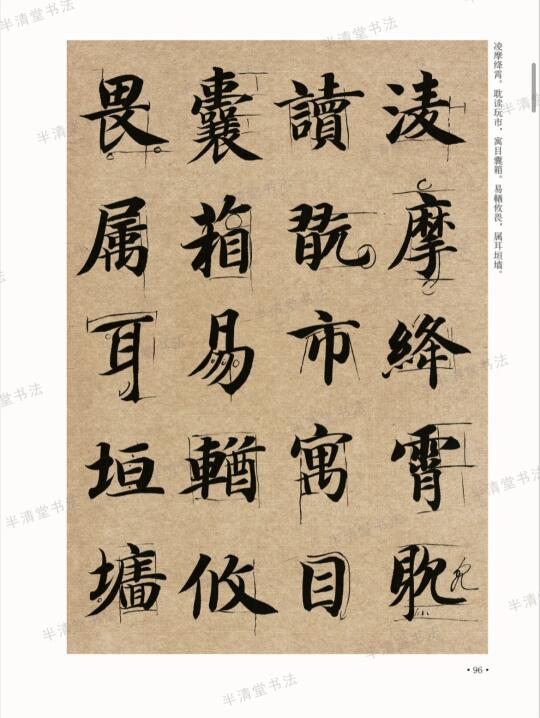 凌摩绛霄。耽读玩市，寓目囊箱。易輶攸畏，属耳垣墙。
淩摩絳霄耽
讀翫市寓目
囊箱易輶攸
畏属耳垣墻
•96•
半清堂书法